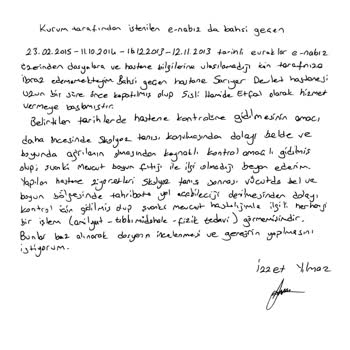 Kurum tarafından istenilen e-nabız da bahsi geçen
23.02.2015 - 11.10.2014 - 16.12.2013 - 12.11.2013 tarihli evraklar e-nabız
üzerinden dosyalara ve hastane bilgilerine ulaşılamadığı için tarafınıza
ibraz edememekteyim. Bahsi geçen hastane Sarıyer Devlet hastanesi
uzun bir süre önce kapatılmış olup Şişli Hamide Etfal olarak hizmet
vermeye başlamıştır.
Belirtilen tarihlerde hastane kontrolüne gidilmesinin amacı
daha öncesinde skolyoz tanısı konulmasından dolayı belde ve
boyunda ağrıların olmasından kaynaklı kontrol amaçlı gidilmiş
olup, şuanki mevcut boyun fıtığı ile ilgi olmadığı beyan ederim.
Yapılan hastane ziyaretleri skolyoz tanısı sonrası vücutda bel ve
boyun bölgesinde tahribata yol açabileceği denilmesinden dolayı
kontrol için gidilmiş olup şuanki mevcut hastalığımla ilgili herhangi
bir işlem (ameliyat - tıbbi müdahale - fizik tedavi) görmemişimdir.
Bunlar baz alınarak dosyanın incelenmesi ve gereğinin yapılmasını
istiyorum.
İzzet Yılmaz